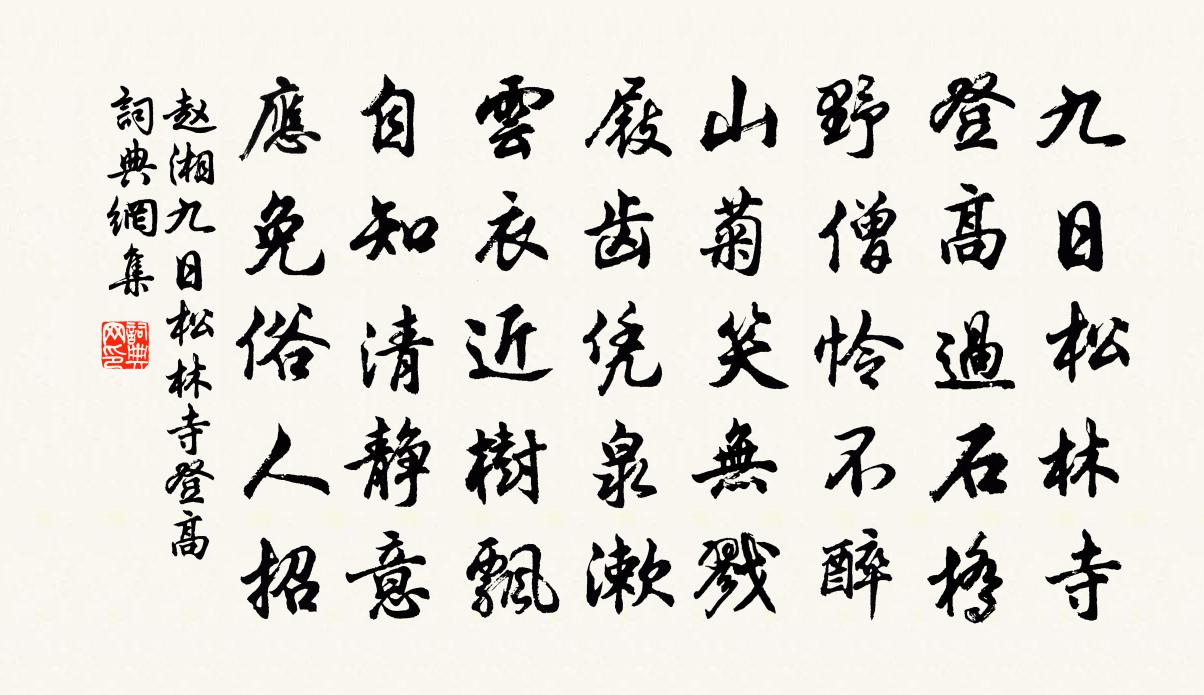 九日松林寺
登高過石橋
野僧憐不醉
山菊笑無戮
屐齿凭泉漱
雲衣近樹飄
自知清静意
應免俗人招
赵湘九日松林寺登高
詞典網集
詞典网印